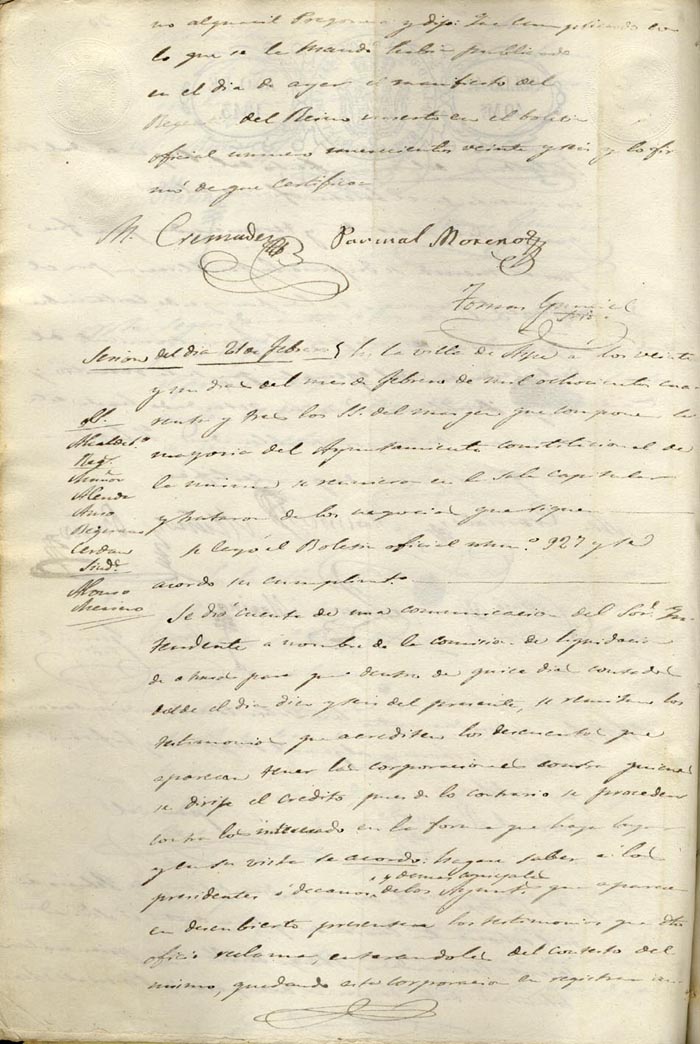 no alguacil Pregonero y dijo: Que cumpliendo con
lo que se le mandó había publicado
en el dia de ayer el manifiesto del
Regente del Reino inserto en el boletin
oficial numero novecientos veinte y seis y lo fir-
mó de que certifico
M. Cremades Pascual Moreno
Tomas
Srio.
Sesion del dia 21 de Febrero En la villa de Aspe a los veinte
y un dias del mes de febrero de mil ochocientos cua-
renta y tres los SS. del margen que componen la
mayoria del Ayuntamiento constitucional de
la misma se reunieron en la Sala capitular
y trataron de los negocios que siguen
SS.
Alcalde 1º
Reg.s
Muñoz
Almda
Cerdan
Sind.s
Alonso
Moreno
Se leyó el Boletin oficial num.º 927 y se
acordó su cumplim.to
Se dió cuenta de una comunicacion del Sor. In-
tendente a nombre de la comision de liquidacion
de atrasos para que dentro de quince dias contados
desde el dia diez y seis del presente, se remitan los
testimonios que acrediten los descuentos que
aparecen tener las corporaciones contra quienes
se dirije el crédito pues de lo contrario se procederá
contra los interesado en la forma que haya lugar
y en su vista se acordo: hagase saber a los
presidentes ó decanos y demas concejales de los Ayunt.s que aparecen
en descubierto presenten los testimonios que dho
oficio reclama, enterandoles del contesto del
mismo, quedando esta corporacion en registrar